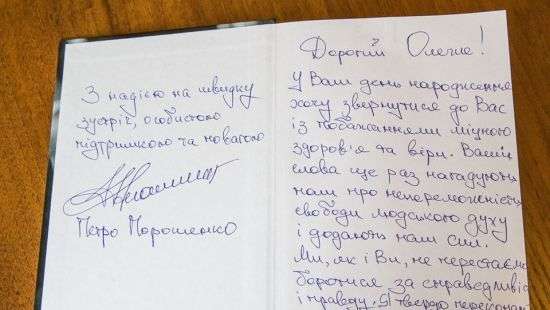 З надією на швидку
зустріч, особистою
підтримкою та повагою
Петро Порошенко
Дорогий Олегле!
У Ваш день народження
хочу звернутися до Вас
із побажаннями міцного
здоров'я та віри. Ваші
слова ще раз нагадують
нам про непереможність
свободи людського духу
і додають нам сил.
Ми, як і Ви, не перестаємо
боротися за справедливіс
і правду. Я твердо переконан